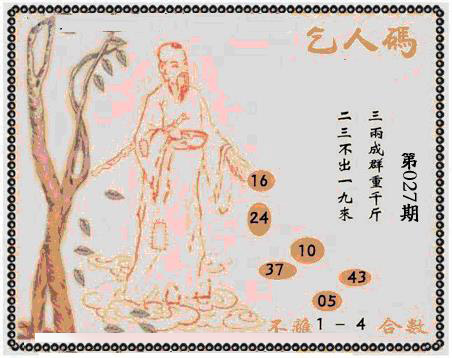 乞人碼
第027期
三兩成群重千斤
二三不出一九來
16
24
10
37
43
05
不離1-4合數